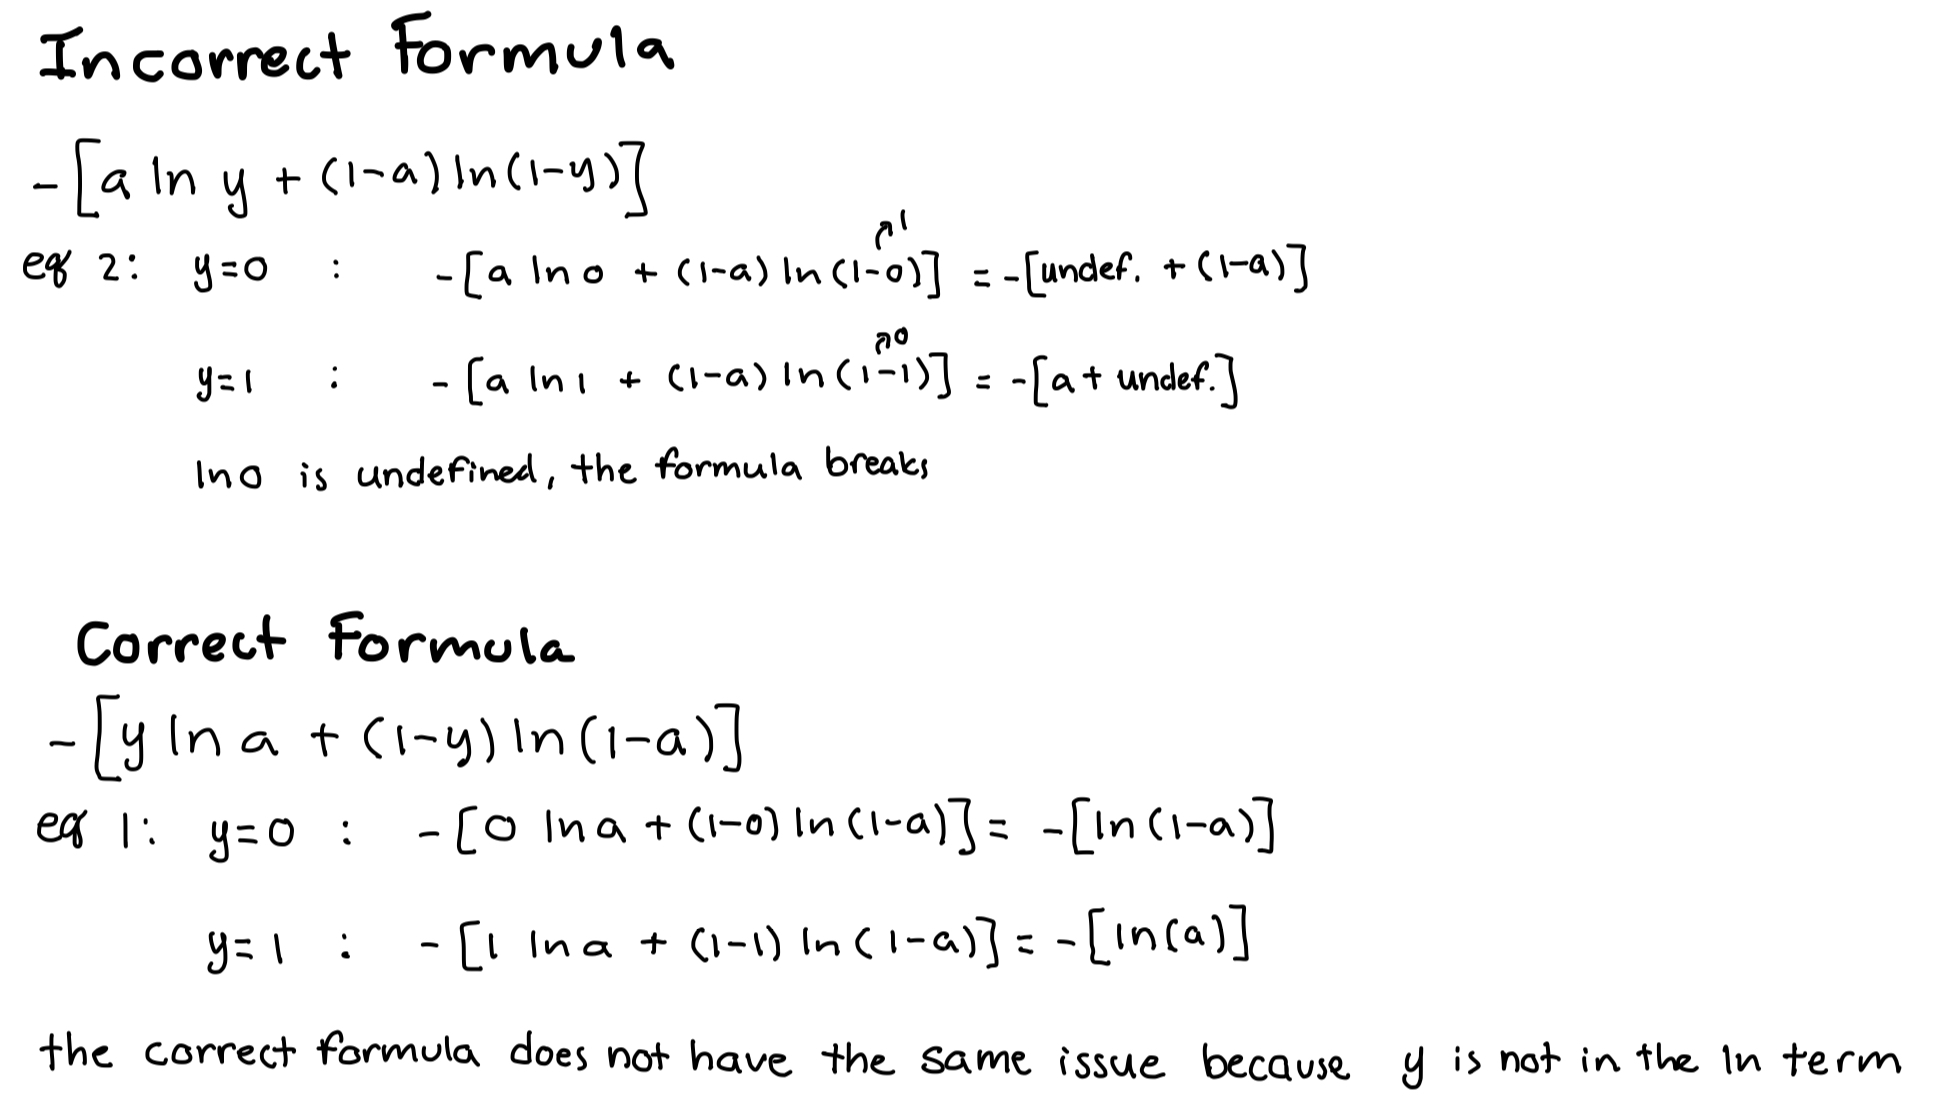 Incorrect Formula
-[a ln y + (1-a) ln(1-y)]
eq 2: y=0 : -[a ln 0 + (1-a) ln (1-0)] = -[undef. + (1-a)]
1
y=1 : -[a ln 1 + (1-a) ln (1-1)] = -[a + undef.]
0
ln 0 is undefined, the formula breaks
Correct Formula
-[y ln a + (1-y) ln (1-a)]
eq 1: y=0 : -[0 ln a + (1-0) ln (1-a)] = -[ln (1-a)]
y=1 : -[1 ln a + (1-1) ln (1-a)] = -[ln(a)]
the correct formula does not have the same issue because y is not in the ln term